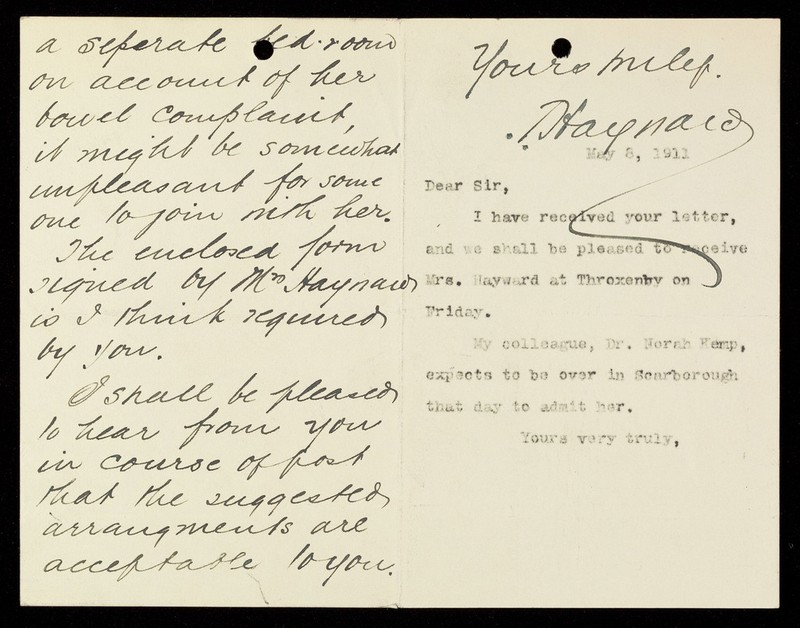 a seperate bed-room
on account of her
bowel complaint,
it might be somewhat
unpleasant for some
one to join with her.
The enclosed form
signed by Mrs Haynard
is I think required
by you.
I shall be pleased
to hear from you
in course of post
that the suggested
arrangments are
acceptable to you.
Yours
Haynard
May 8, 1911
Dear Sir,
I have received your letter,
and we shall be pleased to receive
Mrs. Hayward at Throxenby on
Friday.
My colleague, Dr. Norah Kemp,
expects to be over in Scarborough
that day to admit her.
Yours very truly,